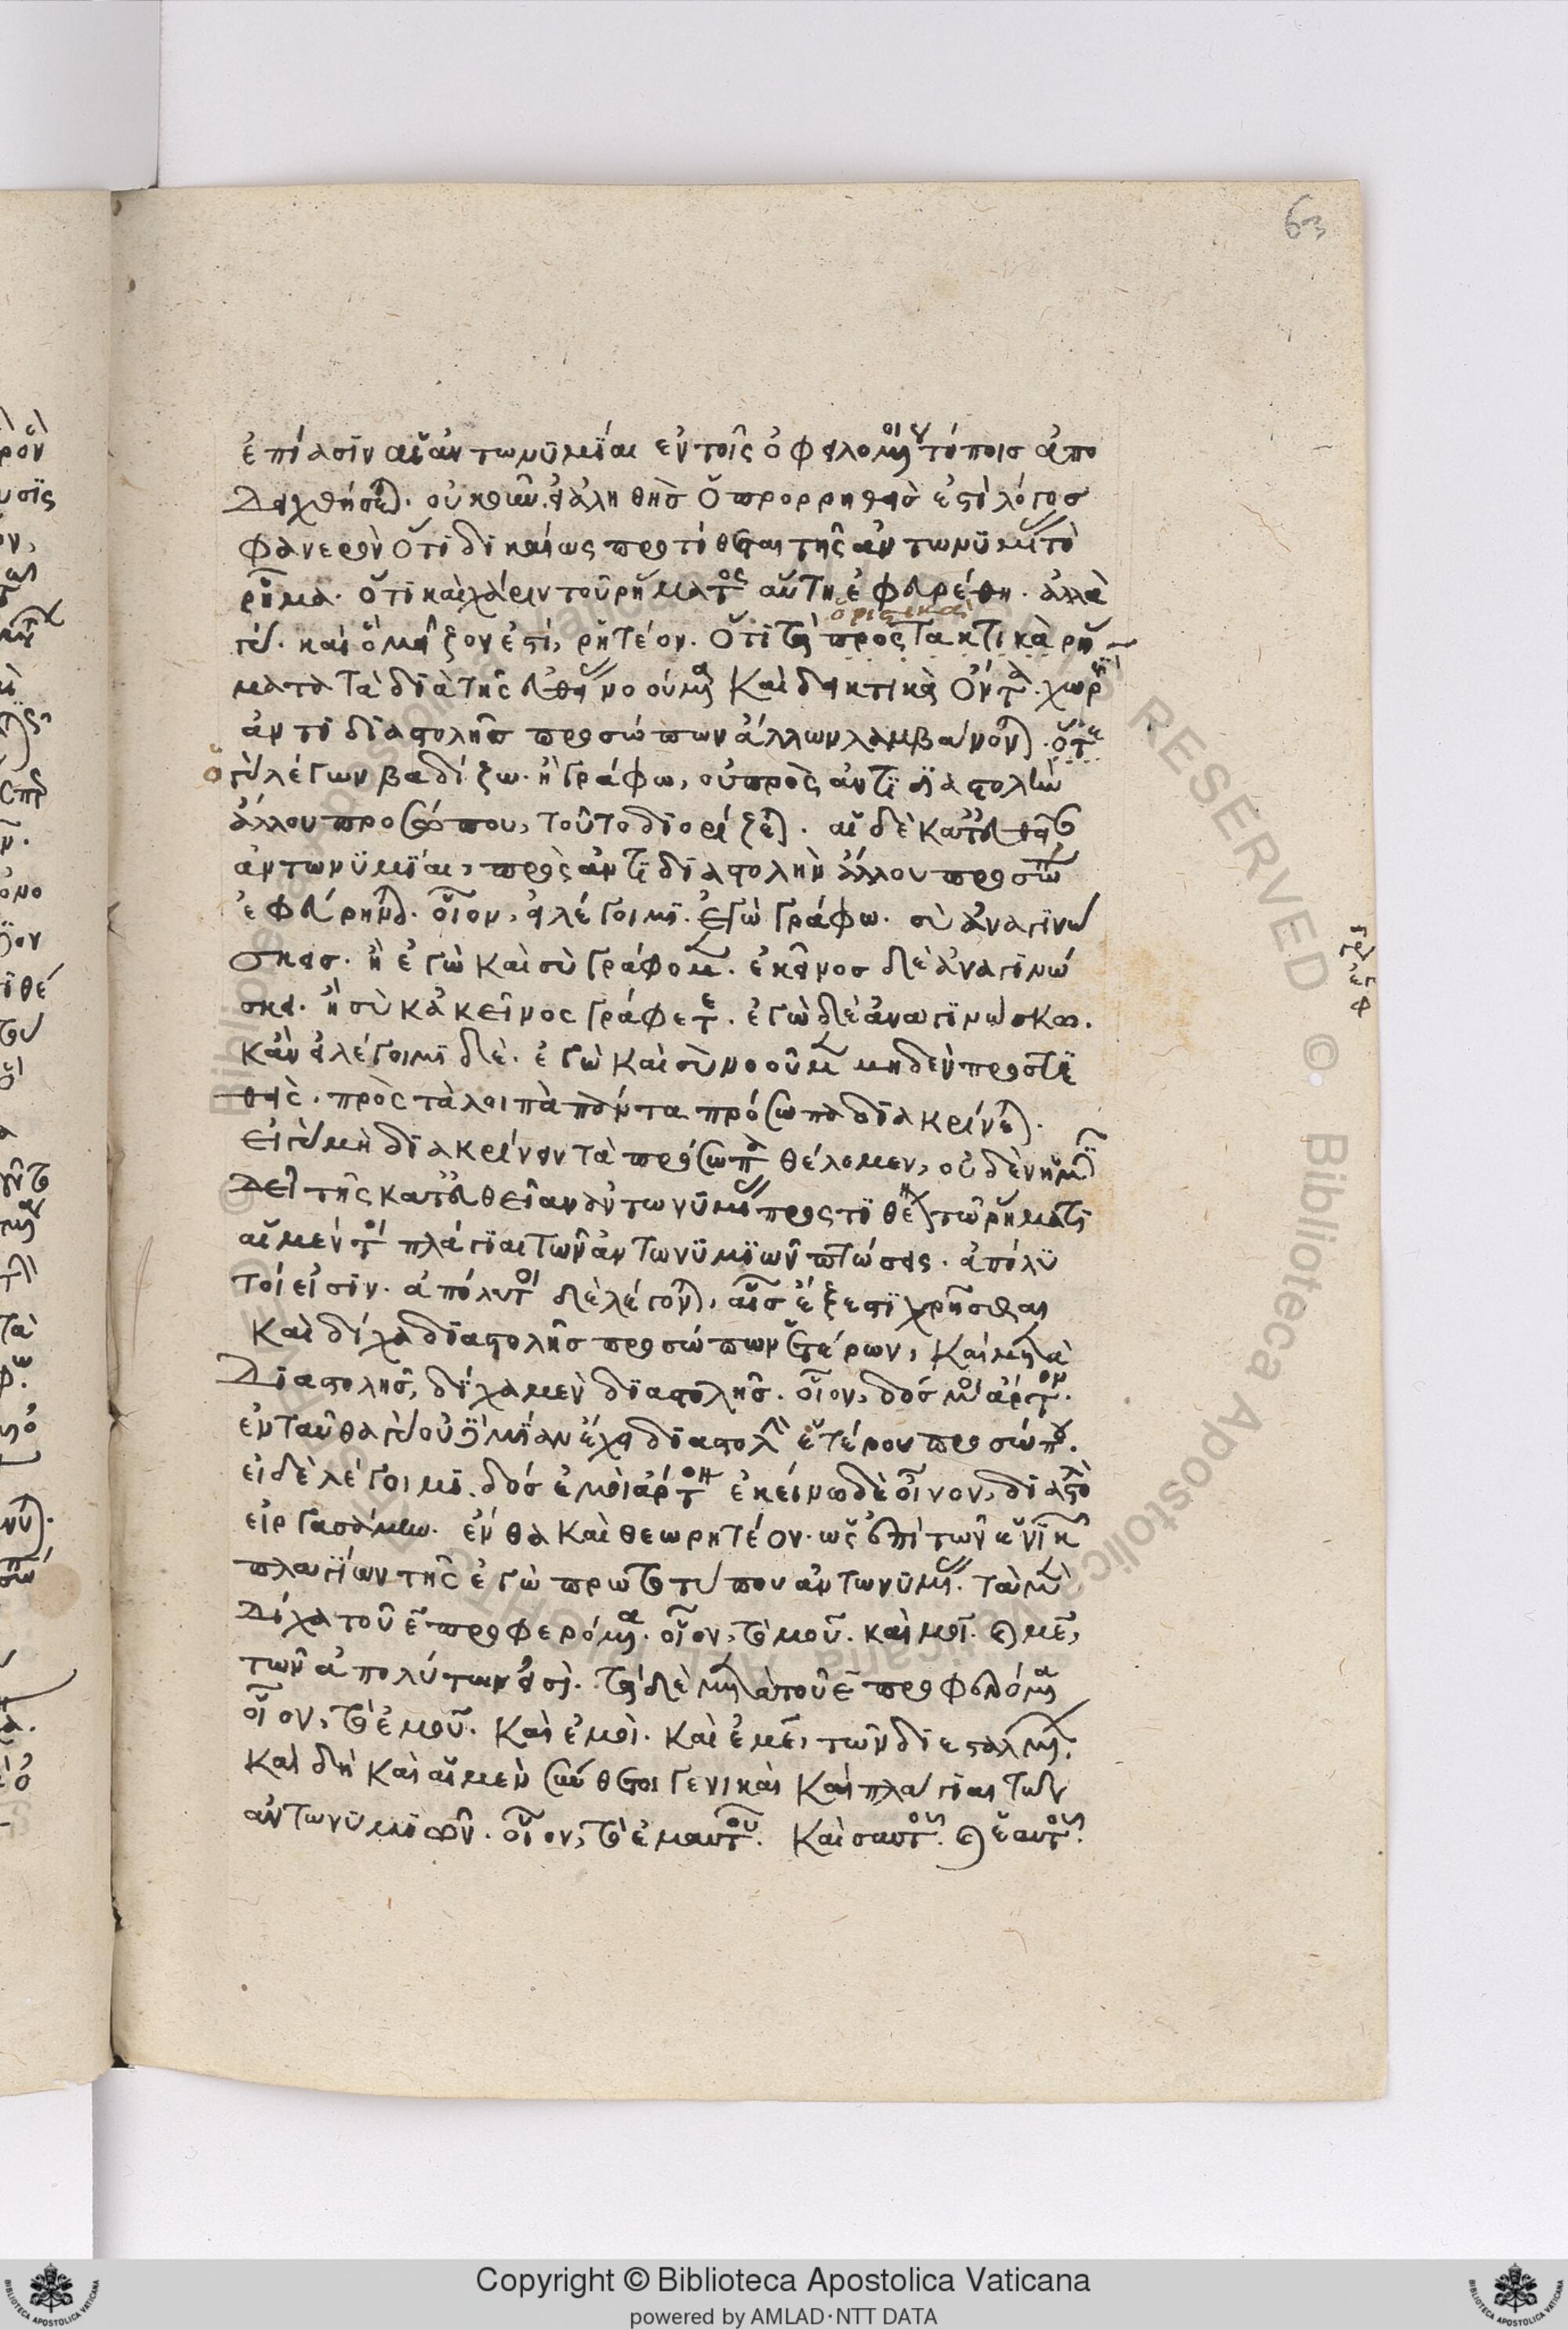 63
ἐπίασιν αἱ ἀντωνυμίαι ἐν τοῖς ὀφειλομένοις τόποις ἀπο
δειχθήσεται. οὐκοῦν εἰ ἀληθὴς ὁ προρρηθεὶς ἐστὶ λόγος
φανερὸν ὅτι δικαίως προτίθεται τῆς ἀντωνυμίας τὸ
ῥῆμα. ὅτι καὶ χάριν τοῦ ῥήματος αὕτη ἐφευρέθη. ἀλλὰ
γὰρ καὶ ὃ μεῖζον ἐστί, ῥητέον. ὅτι τὰ προστακτικὰ ῥή
ὁριστικὰ
ματα τὰ διὰ τῆς εὐθείας νοούμενα καὶ δεικτικὰ ὄντα. χωρὶς
ἀντιδιαστολῆς προσώπων ἄλλων λαμβάνονται.
ὁ γὰρ λέγων βαδίζω. ἢ γράφω, οὐ πρὸς ἀντιδιαστολὴν
ἄλλου προσώπου, τοῦτο διορίζεται. αἱ δὲ κατ' εὐθεῖαν
ἀντωνυμίαι, πρὸς ἀντιδιαστολὴν ἄλλου προσώπου
ἐφεύρηνται. οἷον, εἰ λέγοιμι. ἐγὼ γράφω. σὺ ἀναγινώ
σκεις. ἢ ἐγὼ καὶ σὺ γράφομεν. ἐκεῖνος δὲ ἀναγινώ
σκει. ἢ σὺ κἀκεῖνος γράφετε. ἐγὼ δὲ ἀναγινώσκω.
κἂν εἰ λέγοιμι δὲ. ἐγὼ καὶ σὺ νοοῦμεν μηδὲν προστι
θεὶς. πρὸς τὰ λοιπὰ πάντα πρόσωπα διακρίνεται.
εἰ γὰρ μὴ διακρίνειν τὰ πρόσωπα θέλομεν, οὐδὲν ἡμῖν
δεῖ τῆς κατ' εὐθεῖαν ἀντωνυμίας προστιθεμένης τῷ ῥήματι
αἱ μέν τοι πλάγιαι τῶν ἀντωνυμιῶν πτώσεις. ἀπόλυ
τοί εἰσιν. ἀπόλυτοι δὲ λέγονται, αἷς ἔξεστι χρῆσθαι
καὶ δίχα διαστολῆς προσώπων ἑτέρων, καὶ μετὰ
διαστολῆς, δίχα μὲν διαστολῆς. οἷον, δός μοι ἄρτον.
ἐνταῦθα γὰρ οὐδεμίαν ἔχει διαστολὴν ἑτέρου προσώπου.
εἰ δὲ λέγοιμι. δὸς ἐμοὶ ἄρτον ἐκείνω δὲ οἶνον, διαστολὴν
εἰργασάμην. ἔνθα καὶ θεωρητέον. ὡς ἐπὶ τῶν ἑνικῶν
πλαγίων τῆς ἐγὼ πρωτοτύπου ἀντωνυμίας. τὰ μὲν
δίχα τοῦ ε προφερόμενα. οἷον, τὸ μοῦ. καὶ μοὶ. καὶ μὲ,
τῶν ἀπολύτων εἰσὶ. τὰ δὲ μετὰ τοῦ ε προφερόμενα
οἷον, τὸ ἐμοῦ. καὶ ἐμοὶ. καὶ ἐμὲ, τῶν διεσταλμένων.
καὶ δὴ καὶ αἱ μὲν σύνθετοι γενικαὶ καὶ πλάγιαι τῶν
ἀντωνυμιῶν. οἷον, τὸ ἐμαυτοῦ. καὶ σαυτοῦ. καὶ ἑαυτοῦ.
Copyright © Biblioteca Apostolica Vaticana
powered by AMLAD·NTT DATA